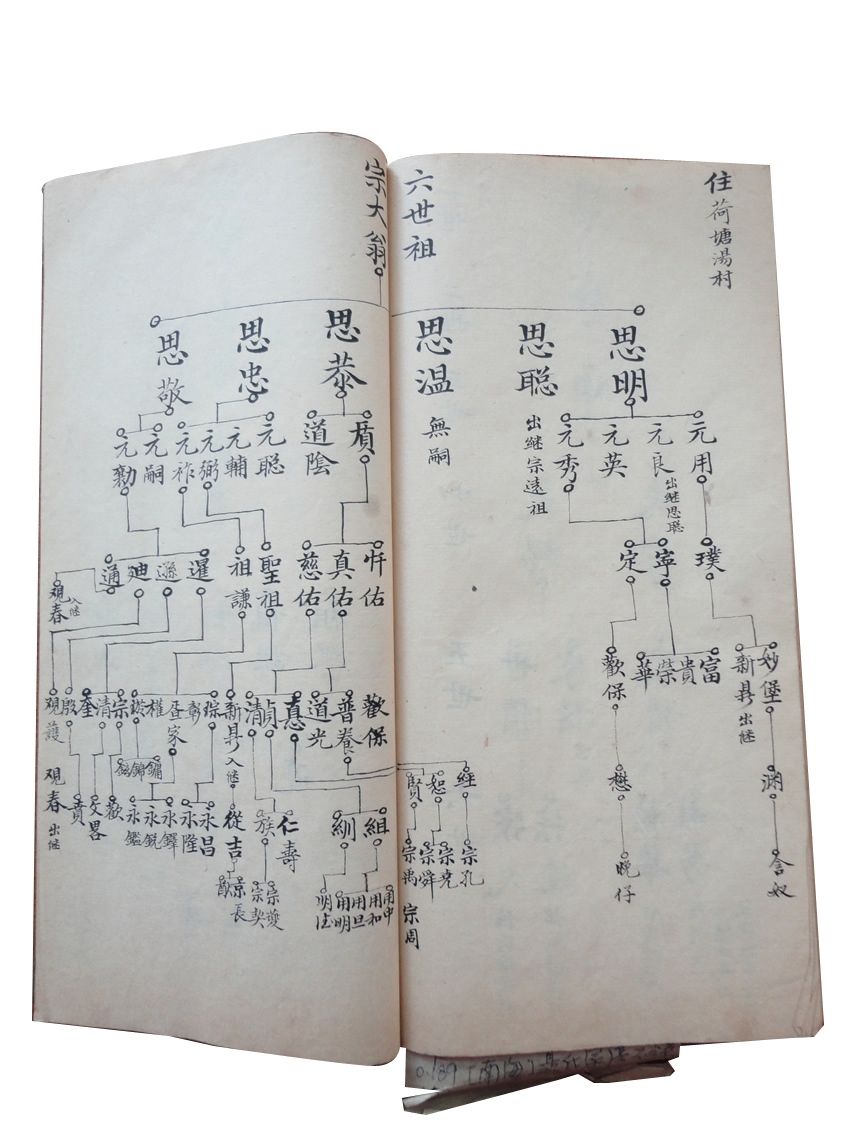 住荷塘湯村
六世祖
宗大翁
思明
思聡 出継宗遠祖
思温 無嗣
思恭
思忠
思敬
元用
元良 出继思聡
元英
元秀
質
道陰
元聡
元輔
元弼
元祚
元嗣
元勷
璞
寧
定
忏佑
真佑
慈佑
聖祖
祖謙
暹
遜
廸
通
观春 入继
妙堡
新具 出继
富
貴
榮
華
歡保
歡保
普養
道光
惪
貞
清
新具 入継
琮
彰
昼家
權
宗
清
奎
殷
观護
观春 出继
渊
懋
経
恕
賢
組
紃
仁壽
族
從吉
永昌
永隆
永鐸
永銳
永鑑
鏞
錦
歡
文畧
貴
含奴
晚仔
宗孔
宗尭
宗舜
宗禹
宗周
用中
用和
用旦
用明
明法
宗夔
宗契
京長
猷